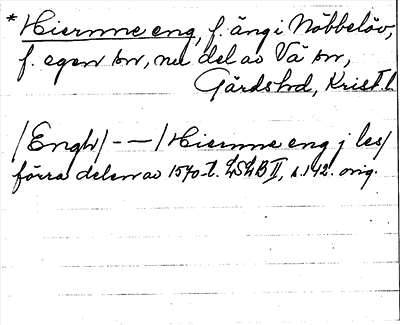 * Hiernne eng, f. äng i Nöbbelöv,
f. egen sn, nu del av Vä sn,
Gärds hd, Krist. l.
/Engh/ - — /Hiernne eng j les/
förra delen av 1540-t. LSLB II, s. 142. orig.